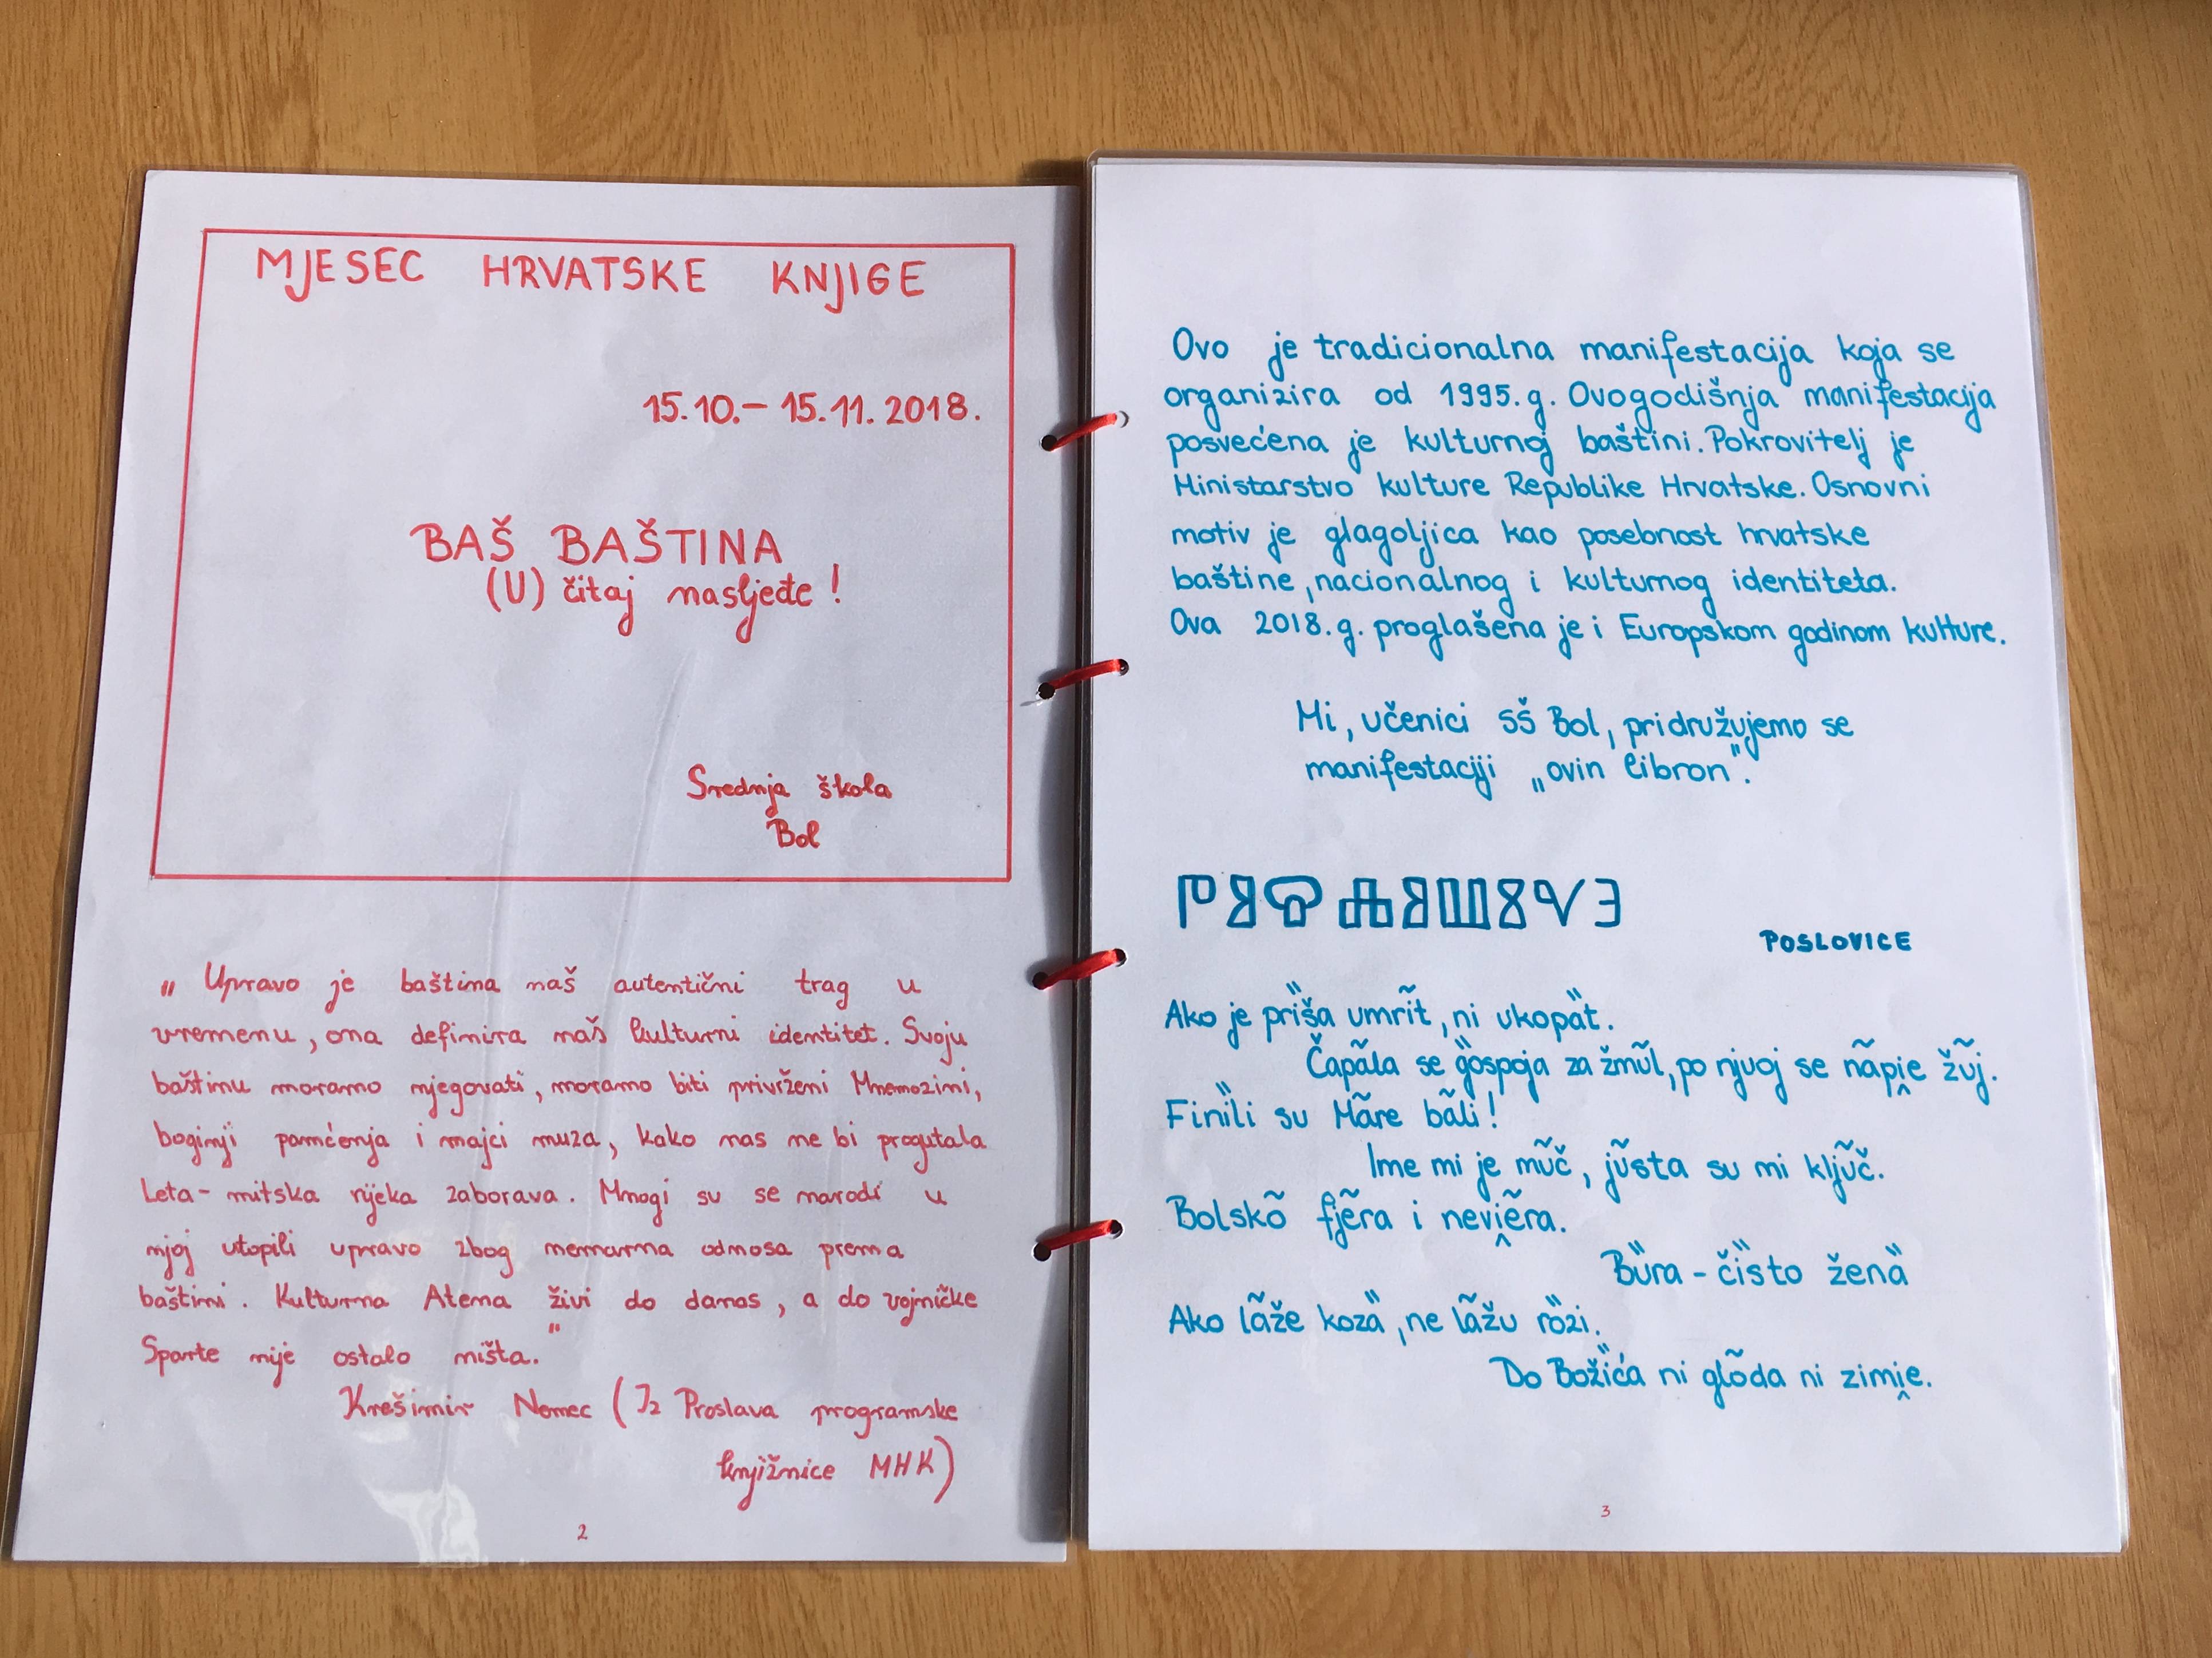 MJESEC HRVATSKE KNJIGE
15.10.- 15.11. 2018.
BAŠ BAŠTINA
(U) čitaj nasljeđe!
Srednja škola
Bol
„ Upravo je baština naš autentični trag u
vremenu, ona definira naš kulturni identitet. Svoju
baštinu moramo njegovati, moramo biti privrženi Mnemozini,
boginji pamćenja i majci muza, kako nas ne bi progutala
Leta- mitska rijeka zaborava. Mnogi su se narodi u
njoj utopili upravo zbog nemarna odnosa prema
baštini. Kulturna Atena živi do danas, a do vojničke
Sparte nije ostalo ništa."
Krešimir Nemec (Iz Proslava programske
knjižnice MHK)
2
Ovo je tradicionalna manifestacija koja se
organizira od 1995. g. Ovogodišnja manifestacija
posvećena je kulturnoj baštini. Pokrovitelj je
Ministarstvo kulture Republike Hrvatske. Osnovni
motiv je glagoljica kao posebnost hrvatske
baštine, nacionalnog i kulturnog identiteta.
Ova 2018. g. proglašena je i Europskom godinom kulture.
Mi, učenici SŠ Bol, pridružujemo se
manifestaciji „ovin libron".
ⰒⰑⰔⰎⰑⰂⰋⰜⰅ
POSLOVICE
Ako je prȉša umrĩt, ni ukopȁt.
Čapãla se gȍspoja za žmũl, po njuoj se nãpi̭e žũj.
Finȉli su Mãre bãli!
Ime mi je mũč, jũsta su mi kljũč.
Bolskõ fjẽra i nevi̭ẽra.
Bȕra - čȉsto ženȁ
Ako lãže kozȁ, ne lãžu rõzi.
Do Božȉća ni glõda ni zimi̭e.
3